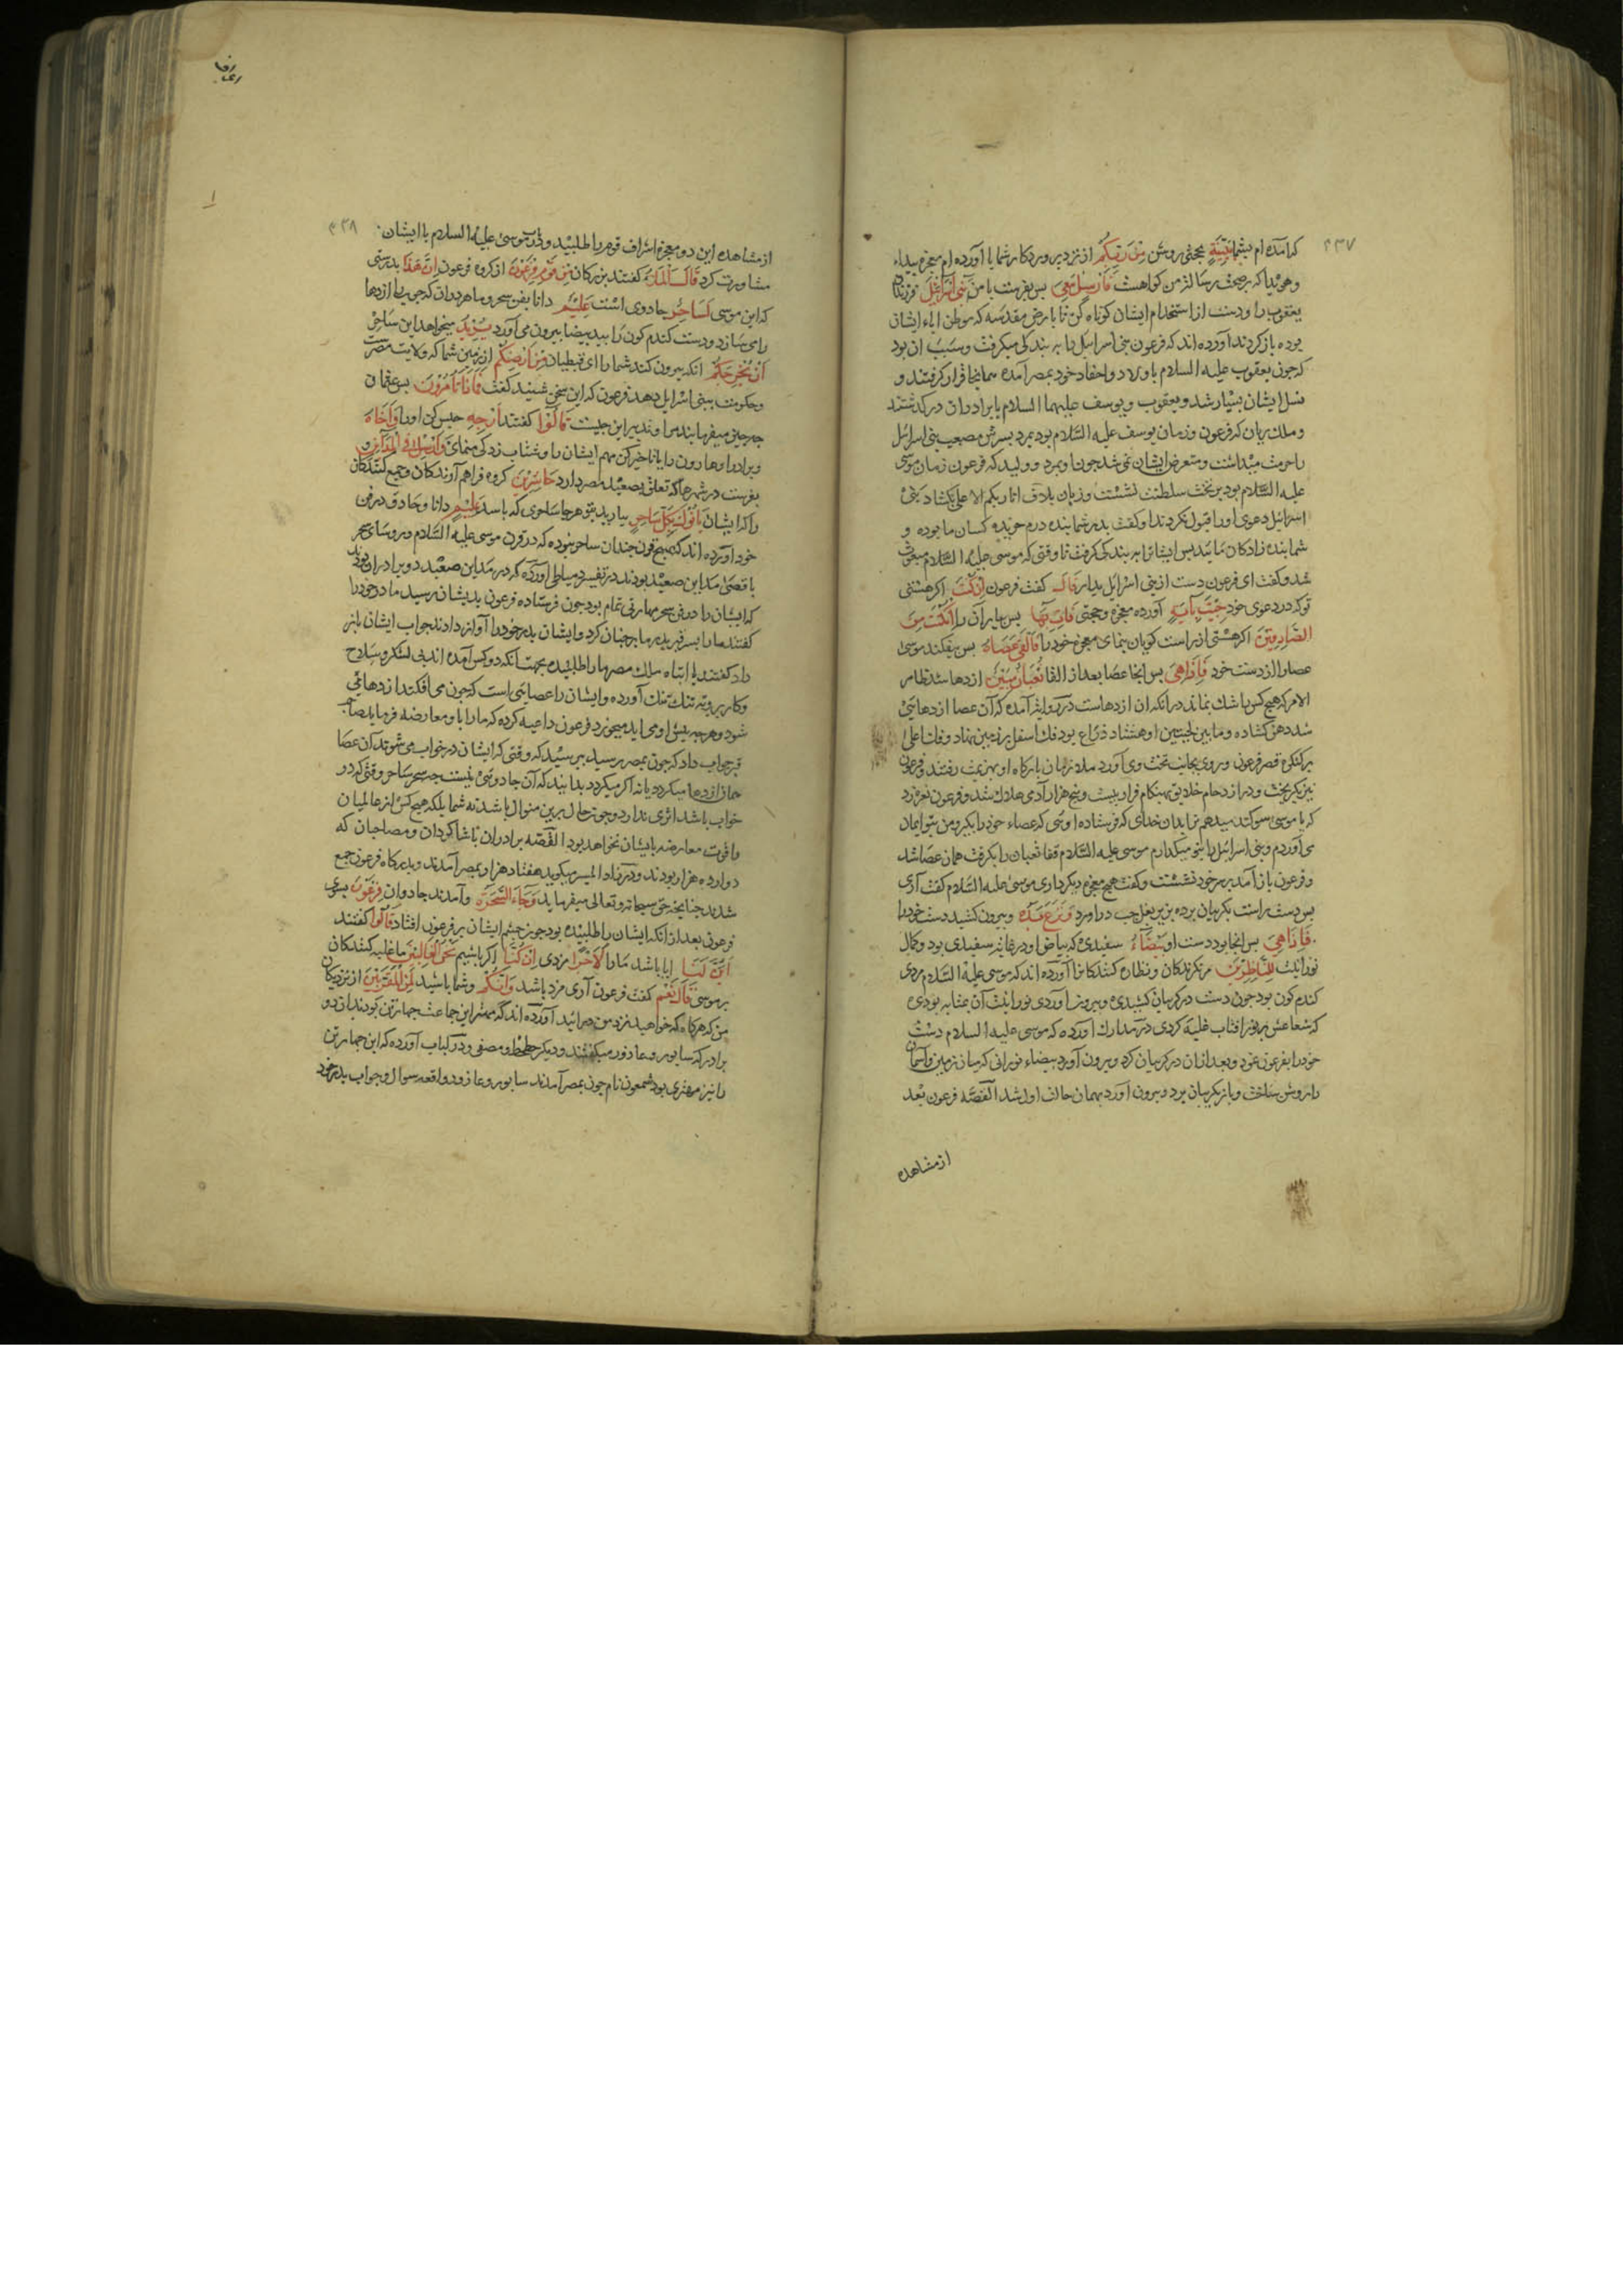 ۴۳۷
که آمده‌ام بشما بِبَيِّنَةٍ بحجتی روشن مِنْ رَبِّكُمْ از نزد پروردکار شما یا آورده‌ام معجزه پیداء
وهویدا که بر صحت رسالت من کواهست فَاَرْسِلْ مَعِيَ بس بفرست با من بَنِي اِسْرَائِيلَ فرزندان
یعقوب را ودست از استخدام ایشان کوتاه کن تا بارض مقدسه که موطن اباء ایشان
بوده باز کردند آورده‌اند که فرعون بنی اسرائیل را به بندکی میکرفت وسبب ان بود
که جون یعقوب علیه السلام باولاد واحفاد خود بمصر آمده همانجا قرار کرفتند و
نسل ایشان بسیار شد ویعقوب ویوسف علیهما السلام با برادران در کذشتند
وملک ریان که فرعون زمان یوسف علیه السّلام بود بمرد پسرش مصعب بنی اسرائیل
را حرمت میداشت ومتعرض ایشان نمی شد جون او بمرد وولید که فرعون زمان موسی
علیه السّلام بود بر تخت سلطنت نشست وزبان بلاف انا ربکم الاعلی بکشاد بنی
اسرائیل دعوی او را قبول نکردند او کفت پدر شما بنده درم خریده کسان ما بوده و
شما بنده زادکان مائید بس ایشانرا به بندکی کرفت تا وقتی که موسی علیه السّلام مبعوث
شد وکفت ای فرعون دست از بنی اسرائیل بدار قَالَ کفت فرعون اِنْ كُنْتَ اکر هستی
تو که در دعوی خود جِئْتَ بِآيَةٍ آورده معجزه وحجتی فَأْتِ بِهَا بس بیار آن را اِنْ كُنْتَ مِنَ
الصَّادِقِينَ اکر هستی از راست کویان بنمای معجزه خود را فَاَلْقَى عَصَاهُ بس بیفکند موسی
عصا را از دست خود فَاِذَا هِيَ بس انجا عصا بعد از القا ثُعْبَانٌ مُبِينٌ اژدها شد ظاهر
الامر که هیچ کس را شک نماند در آنکه ان اژدهاست در روایت آمده که آن عصا اژدهائی
شد دهن کشاده وما بین لحیتین او هشتاد ذراع بود فک اسفل بر زمین نهاد وفک اعلی
بر کنکره قصر فرعون وروی بجانب تخت وی آورد ملازمان بارکاه او بهزیمت رفتند وفرعون
نیز بکریخت ودر ازدحام خلایق بهنکام فرار بیست وپنج هزار آدمی هلاک شد وفرعون نعره زد
که یا موسی سوکند میدهم ترا بدان خدای که فرستاده اوئی که عصاء خود را بکیر ومن بتو ایمان
می آوردم وبنی اسرائیل را بتو میکذارم موسی علیه السّلام قفا ثعبان را بکرفت همان عصا شد
وفرعون باز آمد بر سر خود نشست وکفت هیچ معجزه دیکر داری موسی علیه السّلام کفت آری
بس دست راست بکریبان برده بزیر بغل جب در آورد وَنَزَعَ يَدَهُ وبیرون کشید دست خود را
فَاِذَا هِيَ بس انجا بود دست او بَيْضَاءُ سفیدی که بیاض او در غایة سفیدی بود وکمال
نورانیت لِلنَّاظِرِينَ مر نکرندکان ونظاره کنندکانرا آورده‌اند که موسی علیه السّلام مردی
کندم کون بود جون دست در کریبان کشیدی وبیرون آوردی نورانیت آن بمثابه بودی
که شعاعش بر نور افتاب غلبه کردی در مدارک آورده که موسی علیه السلام دست
خود را بفرعون نمود وبعد از ان در کریبان کرد وبیرون آورد بیضاء نورانی که میان زمین وآسمان
را روشن ساخت وباز بکریبان برد وبیرون آورد بهمان حالت اول شد القصّه فرعون بعد
از مشاهده
۴۳۸
از مشاهده این دو معجزه اشراف قوم را طلبید ودر باب موسی علیه السلام با ایشان
مشاورت کرد قَالَ الْمَلَأُ کفتند بزرکان مِنْ قَوْمِ فِرْعَوْنَ از کروه فرعون اِنَّ هَذَا بدرستی
که این موسی لَسَاحِرٌ جادوی است عَلِيمٌ دانا بفن سحر وماهر در ان که جوب را اژدها
می سازد ودست کندم کون را ید بیضا بیرون می آورد يُرِيدُ میخواهد این ساحر
اَنْ يُخْرِجَكُمْ آنکه بیرون کند شما را ای قبطیان مِنْ اَرْضِكُمْ از زمین شما که ولایت مصرست
وحکومت ببنی اسرائیل دهد فرعون که این سخن شنید کفت فَمَاذَا تَأْمُرُونَ بس
جه جیز میفرمایید مرا وتدبیر این جیست قَالُوا کفتند اَرْجِهْ حبس کن او را وَاَخَاهُ
وبرادر او هارون را یا تاخیر کن مهم ایشان را وشتاب زدکی منمای وَاَرْسِلْ فِي الْمَدَائِنِ و
بفرست در شهرها که تعلق بصعید مصر دارد حَاشِرِينَ کروه فراهم آورندکان وجمع کنندکان
را که ایشان يَأْتُوكَ بِكُلِّ سَاحِرٍ بیارند بتو هر جا ساحری که باشد عَلِيمٍ دانا وحاذق در فن
خود آورده‌اند که هیچ قرن جندان ساحر نبوده که در قرن موسی علیه السّلام ورؤسای سحر
باقصی مداین صعید بودند در تفسیر دمیاطی آورده که در مداین صعید دو برادران بودند
که ایشان را در فن سحر مهارتی تمام بود جون فرستاده فرعون بدیشان رسید مادر خود را
کفتند ما را بسر قبر پدر ما بر جنان کرد وایشان پدر خود را آواز دادند جواب ایشان باز
داد کفتند یا ابتاه ملک مصر ما را طلبیده بجهت آنکه دو کس آمده‌اند بی لشکر وسلاح
وکار برو به تنک آورده وایشان را عصایی است که جون می افکنند اژدهائی
شود وهر جه بیش او می اید میخورد فرعون داعیه کرده که ما را با او معارضه فرماید صاحب
قبر جواب داد که جون بمصر رسید بپرسید که وقتی که ایشان در خواب می شوند آن عصا
همان اژدها میکردد یا نه اکر میکردد بدانید که آن جادوئی نیست جه سحر ساحر وقتی که در
خواب باشد اثری ندارد وجون حال برین منوال باشد نه شما بلکه هیچ کس از عالمیان
را قوت معارضه با ایشان نخواهد بود القصّه برادران با شاکردان ومصاحبان که
دوازده هزار بودند ودر زاد المسیر میکوید هفتاد هزار بمصر آمدند وبدرکاه فرعون جمع
شدند جنانچه حق سبحانه وتعالی میفرماید وَجَاءَ السَّحَرَةُ وآمدند جادوان فِرْعَوْنَ بسوی
فرعون بعد از آنکه ایشان را طلبیده بود جون جشم ایشان بر فرعون افتاد قَالُوا کفتند
اَئِنَّ لَنَا ایا باشد ما را لَأَجْرًا مزدی اِنْ كُنَّا اکر باشیم نَحْنُ الْغَالِبِينَ ما غلبه کنندکان
بر موسی قَالَ نَعَمْ کفت فرعون آری مزد باشد وَاِنَّكُمْ وشما باشید لَمِنَ الْمُقَرَّبِينَ از نزدیکان
من که هرکاه که خواهید نزد من در ائید آورده‌اند که مهتر این جماعت جهار تن بودند ازان دو
برادر که سابور وعاذور میکفتند ودیکر حطحط ومصفی ودر کتاب آورده که این جهار تن
را نیز مهتری بود شمعون نام جون بمصر آمدند سابور وعاذور واقعه سوال وجواب پدر خود